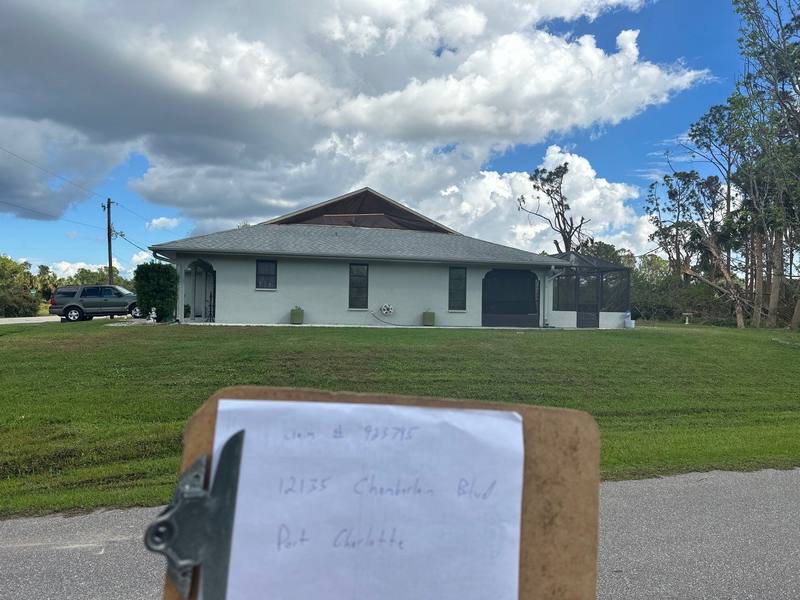 Claim # 923795
12135 Chamberlain Blvd
Port Charlotte